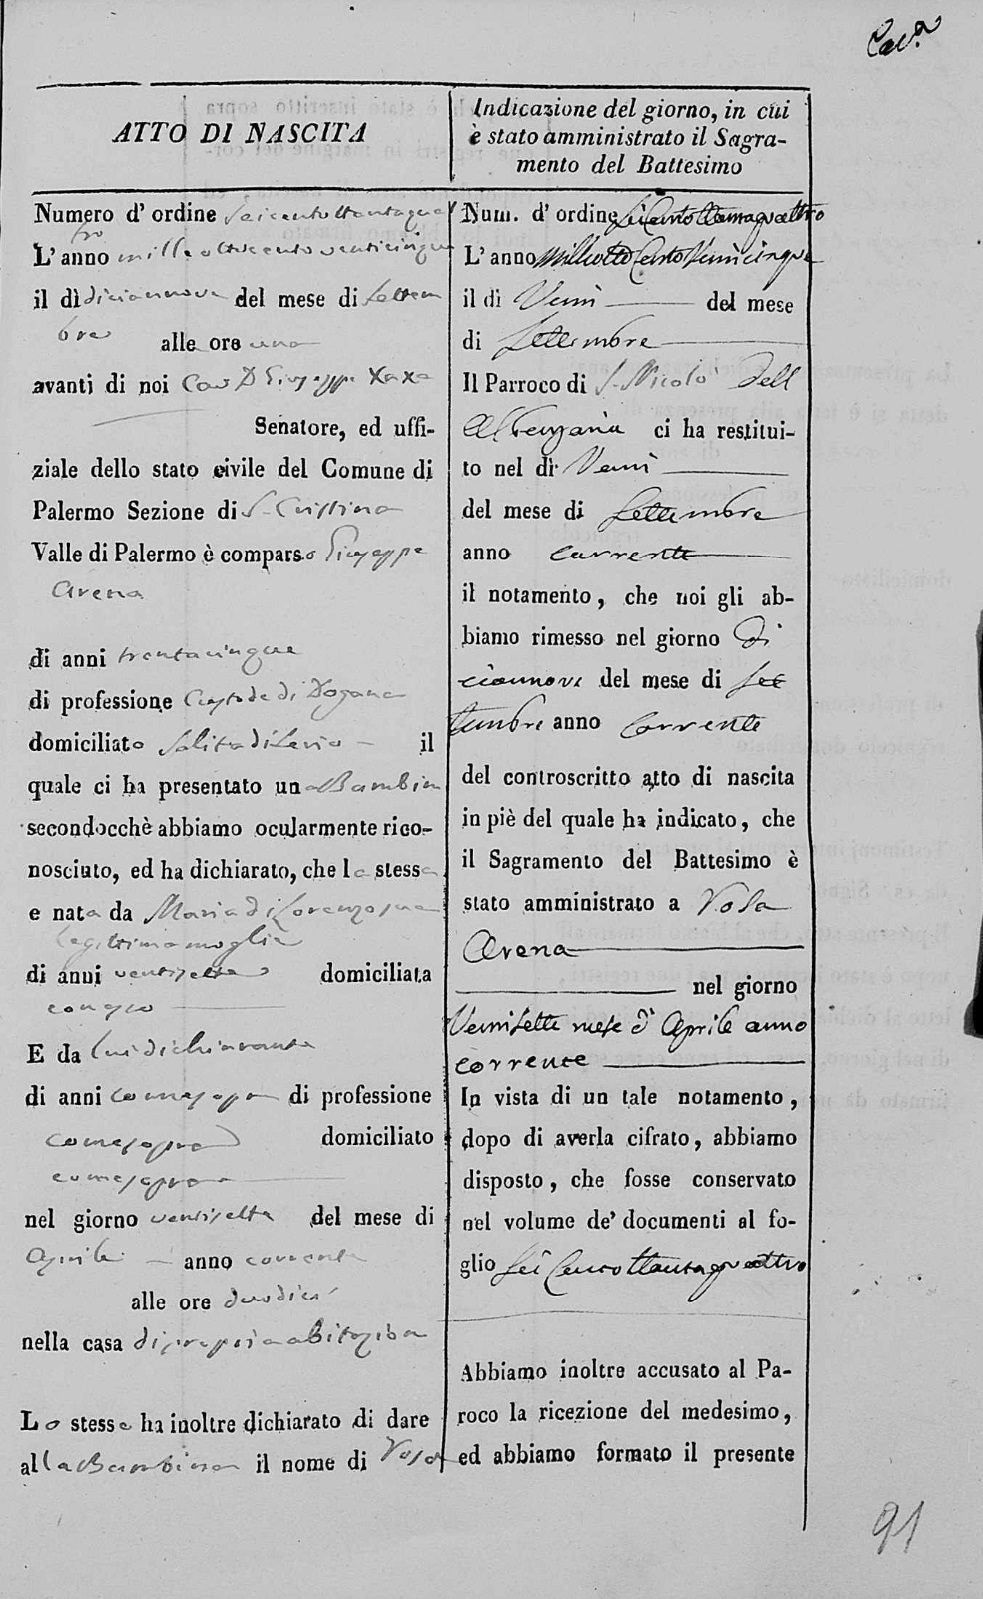 Cava
ATTO DI NASCITA
Numero d' ordine seicentottantaquat
tro
L' anno mille ottocento venticinque
il dì diciannove del mese di Settem
bre alle ore una
avanti di noi Cav D Giuseppe
Senatore, ed uffi-
ziale dello stato civile del Comune di
Palermo Sezione di S. Cristina
Valle di Palermo è comparso Giuseppe
Arena
di anni trentacinque
di professione Custode di Dogana
domiciliato Salita di il
quale ci ha presentato una Bambin
secondocchè abbiamo ocularmente rico-
nosciuto, ed ha dichiarato, che la stessa
e nata da Maria di Lorenzo sua
legittima moglie
di anni ventisette domiciliata
con esso
E da lui dichiarante
di anni come sopra di professione
come sopra domiciliato
come sopra
nel giorno ventisette del mese di
Aprile anno corrente
alle ore duodici
nella casa di propria abitazion
Lo stesso ha inoltre dichiarato di dare
alla Bambina il nome di Rosa
Indicazione del giorno, in cui
è stato amministrato il Sagra-
mento del Battesimo
Num. d' ordine seicentottantaquattro
L' anno milleottocentoventicinque
il di Venti del mese
di Settembre
Il Parroco di S. Nicolò dell
Albergaria ci ha restitui-
to nel dì Venti
del mese di Settembre
anno corrente
il notamento, che noi gli ab-
biamo rimesso nel giorno di
ciannove del mese di Set
tembre anno corrente
del controscritto atto di nascita
in piè del quale ha indicato, che
il Sagramento del Battesimo è
stato amministrato a Rosa
Arena
nel giorno
Ventisette mese di Aprile anno
corrente
In vista di un tale notamento,
dopo di averla cifrato, abbiamo
disposto, che fosse conservato
nel volume de' documenti al fo-
glio seicentottantaquattro
Abbiamo inoltre accusato al Pa-
roco la ricezione del medesimo,
ed abbiamo formato il presente
91